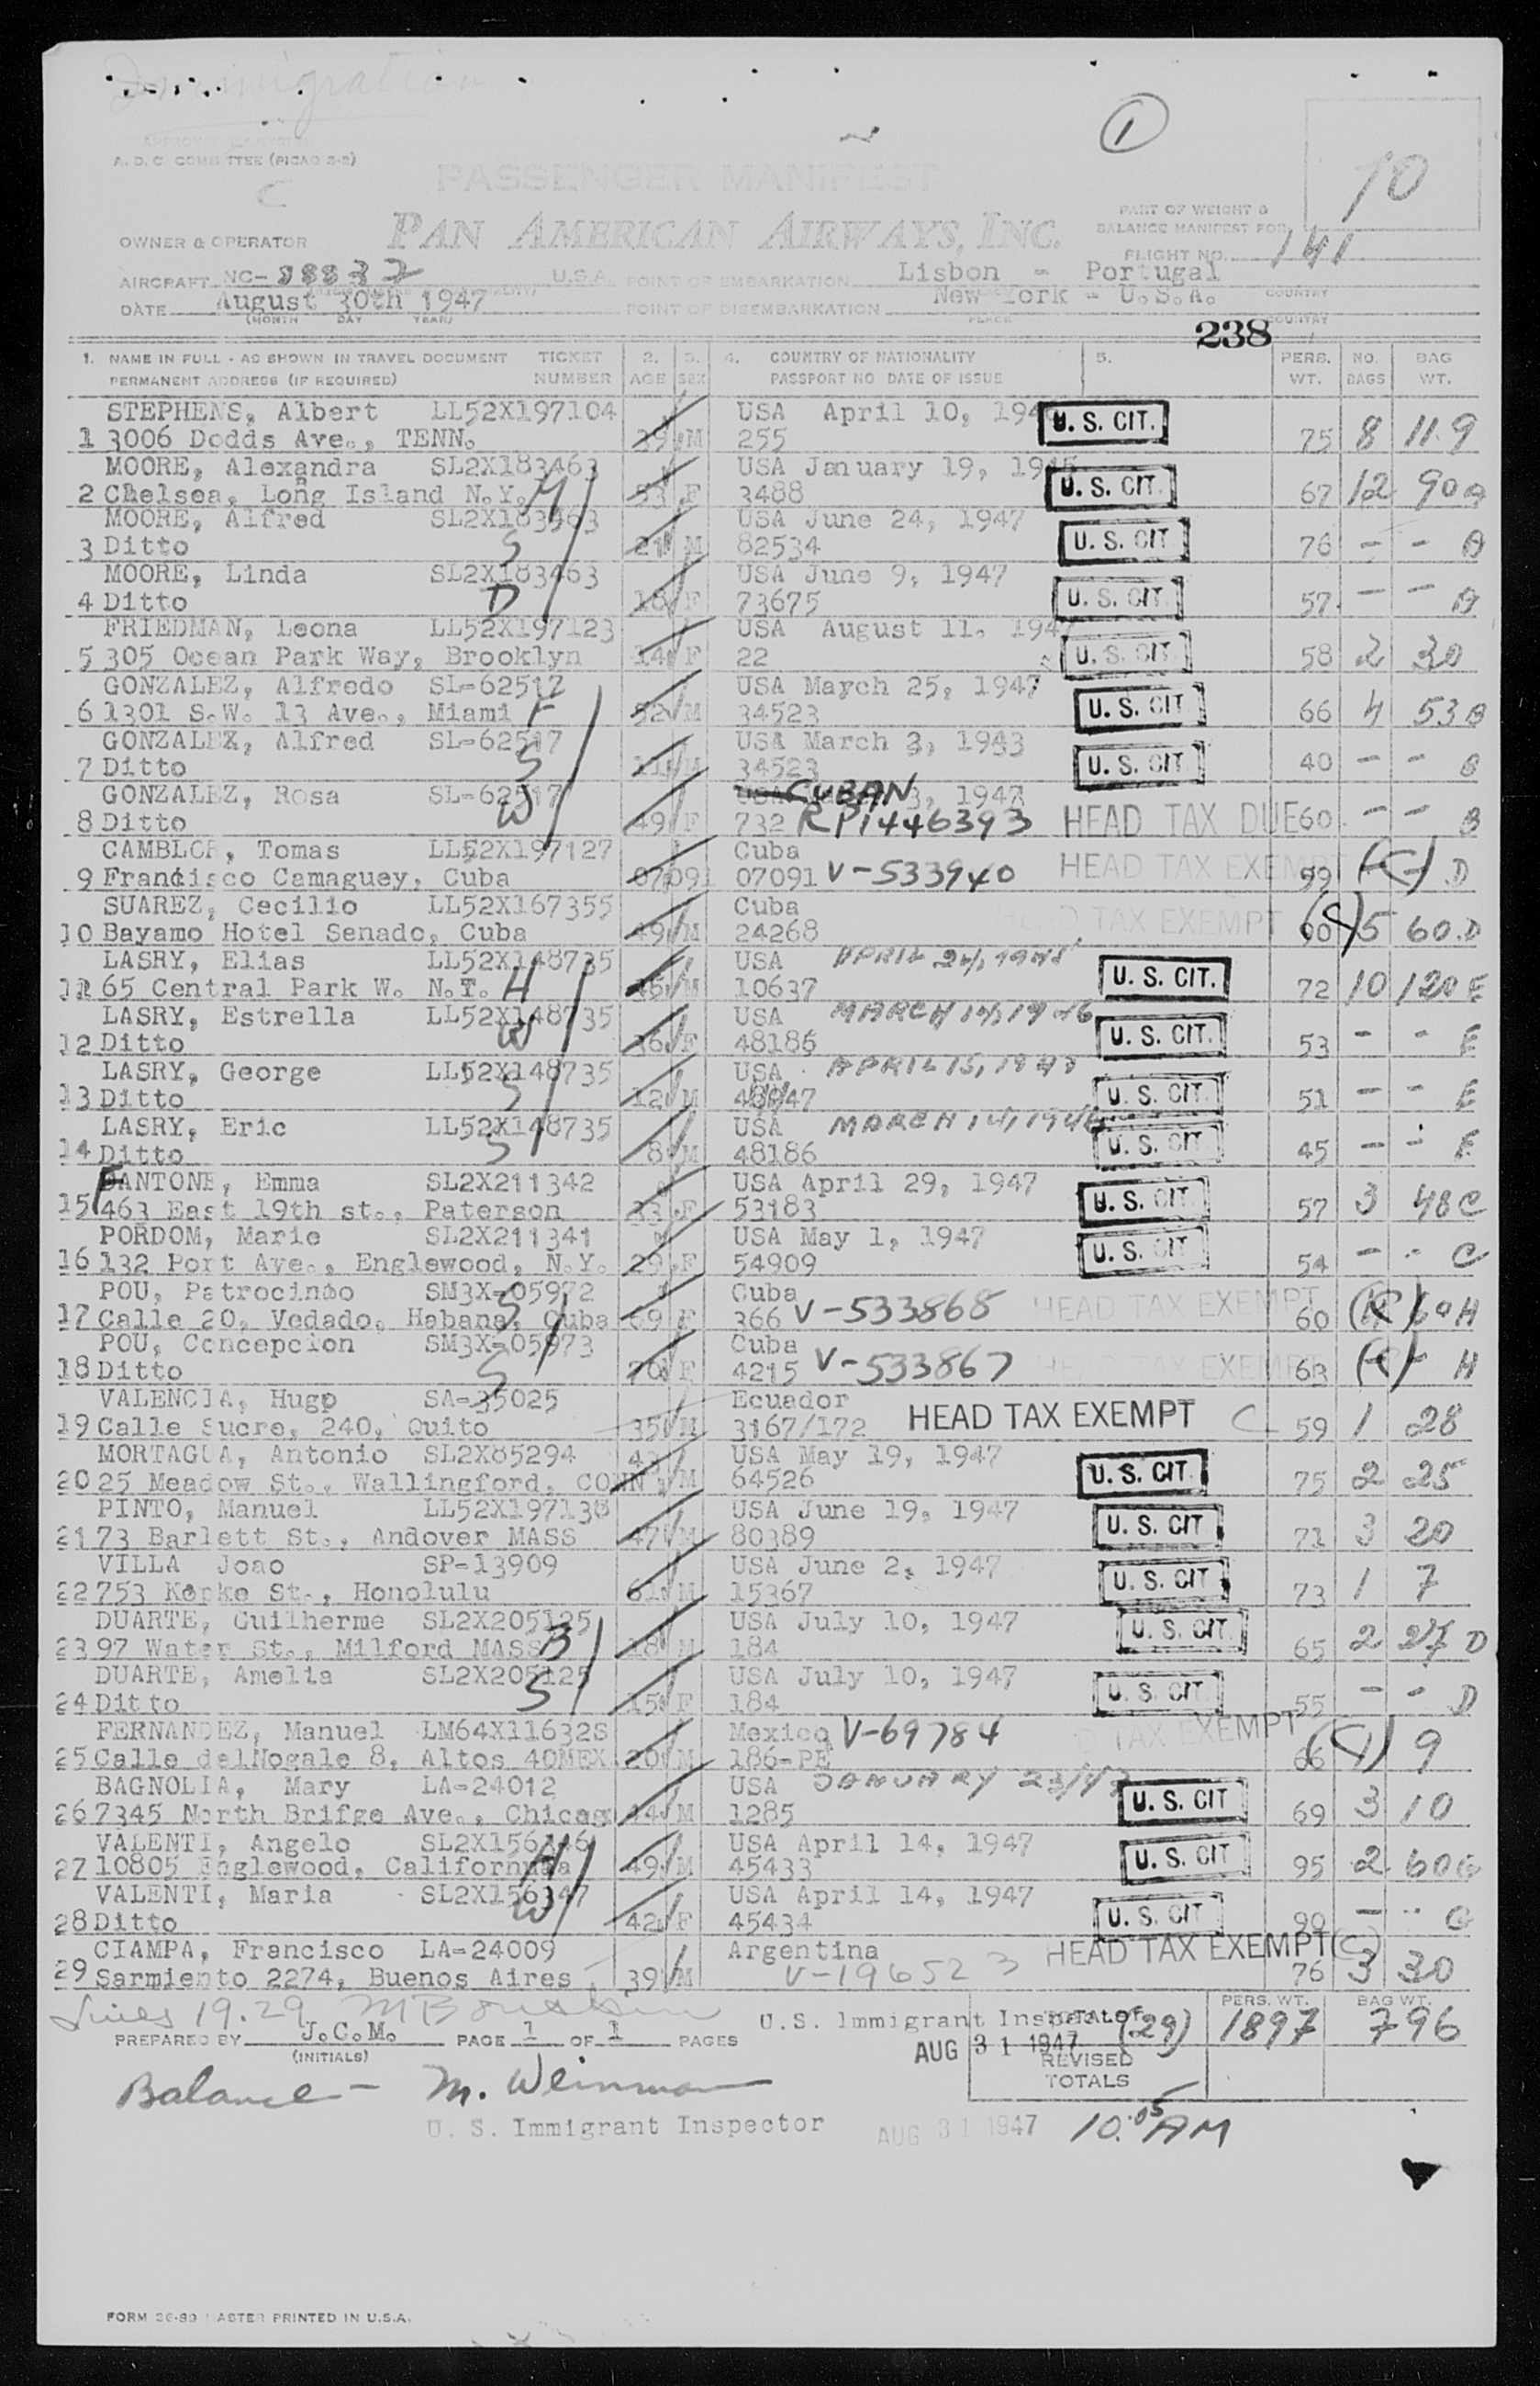 Immigration
1
A. D. C. COMMITTEE (PICAO 2-2)
PASSENGER MANIFEST
10
PAN AMERICAN AIRWAYS, INC.
PART OF WEIGHT &
BALANCE MANIFEST FOR
OWNER & OPERATOR
FLIGHT NO. 141
AIRCRAFT NC-88832 U.S.A. POINT OF EMBARKATION Lisbon - Portugal
COUNTRY
DATE August 30th 1947 POINT OF DISEMBARKATION New York - U.S.A.
(MONTH DAY YEAR) PLACE COUNTRY
238
1. NAME IN FULL - AS SHOWN IN TRAVEL DOCUMENT TICKET 2. 3. 4. COUNTRY OF NATIONALITY 5. PERS. NO. BAG
PERMANENT ADDRESS (IF REQUIRED) NUMBER AGE SEX PASSPORT NO DATE OF ISSUE WT. BAGS WT.
STEPHENS, Albert LL52X197104 USA April 10, 194 U. S. CIT.
1 3006 Dodds Ave., TENN. 39 M 255 75 8 119
MOORE, Alexandra SL2X183463 USA January 19, 1945 U. S. CIT.
2 Chelsea, Long Island N.Y. M 53 F 3488 67 12 90 B
MOORE, Alfred SL2X183463 USA June 24, 1947 U. S. CIT
3 Ditto S 21 M 82534 76 - - B
MOORE, Linda SL2X183463 USA June 9, 1947 U. S. CIT.
4 Ditto D 18 F 73675 57 - - B
FRIEDMAN, Leona LL52X197123 USA August 11. 1947 U. S. CIT.
5 305 Ocean Park Way, Brooklyn 14 F 22 58 2 30
GONZALEZ, Alfredo SL-62517 USA March 25, 1947 U. S. CIT
6 1301 S.W. 13 Ave., Miami F 52 M 34523 66 4 53 B
GONZALEX, Alfred SL-62517 USA March 3, 1943 U. S. CIT
7 Ditto S 11 M 34523 40 - - B
GONZALEZ, Rosa SL-62517 CUBAN 3, 1947
8 Ditto W 49 F 732 RP1446393 HEAD TAX DUE 60 - - B
CAMBLOR, Tomas LL52X197127 Cuba
9 Francisco Camaguey, Cuba 07091 07091 V-533940 HEAD TAX EXEMPT 99 (C) - D
SUAREZ, Cecilio LL52X167355 Cuba
10 Bayamo Hotel Senado, Cuba 49 M 24268 HEAD TAX EXEMPT 90 (C) 5 60 D
LASRY, Elias LL52X148735 USA APRIL 24, U. S. CIT.
11 65 Central Park W. N.Y. H 45 M 10637 72 10 120 E
LASRY, Estrella LL52X148735 USA MARCH 14, 1946 U. S. CIT.
12 Ditto W 36 F 48186 53 - - E
LASRY, George LL52X148735 USA APRIL 15, U. S. CIT.
13 Ditto S 12 M 51 - - E
LASRY, Eric LL52X148735 USA MARCH 14, 1946 U. S. CIT
14 Ditto S 8 M 48186 45 - - E
FANTONE, Emma SL2X211342 USA April 29, 1947 U. S. CIT.
15 463 East 19th st., Paterson 33 F 53183 57 3 48 C
PORDOM, Marie SL2X211341 USA May 1, 1947 U. S. CIT
16 132 Port Ave., Englewood, N.Y. 29 F 54909 54 - - C
POU, Patrocinio SM3X-05972 Cuba
17 Calle 20, Vedado, Habana, Cuba S 69 F 366 V-533868 HEAD TAX EXEMPT 60 (C) 60 H
POU, Concepcion SM3X-05973 Cuba
18 Ditto S 70 F 4215 V-533867 HEAD TAX EXEMPT 63 (C) - H
VALENCIA, Hugo SA-35025 Ecuador
19 Calle Sucre, 240, Quito 35 M 3167/172 HEAD TAX EXEMPT C 59 1 28
MORTAGUA, Antonio SL2X85294 43 USA May 19, 1947 U. S. CIT.
20 25 Meadow St., Wallingford, CONN M 64526 75 2 25
PINTO, Manuel LL52X197138 USA June 19, 1947 U. S. CIT
21 73 Barlett St., Andover MASS 47 M 80389 71 3 20
VILLA Joao SP-13909 USA June 2, 1947 U. S. CIT
22 753 Kopke St., Honolulu 61 M 15367 73 1 7
DUARTE, Guilherme SL2X205125 USA July 10, 1947 U. S. CIT.
23 97 Water St., Milford MASS B 18 M 184 65 2 27 D
DUARTE, Amelia SL2X205125 USA July 10, 1947 U. S. CIT.
24 Ditto S 15 F 184 55 - - D
FERNANDEZ, Manuel LM64X11632S Mexico V-69784 TAX EXEMPT
25 Calle delNogale 8, Altos 40MEX 20 M 186-PE 66 (C) 1 9
BAGNOLIA, Mary LA-24012 USA JANUARY 23, U. S. CIT
26 7345 North Brifge Ave., Chicag 44 M 1285 69 3 10
VALENTI, Angelo SL2X156346 USA April 14, 1947 U. S. CIT
27 10805 Englewood, California H 49 M 45433 95 2 60 G
VALENTI, Maria SL2X156347 USA April 14, 1947 U. S. CIT
28 Ditto W 42 F 45434 90 - - G
CIAMPA, Francisco LA-24009 Argentina HEAD TAX EXEMPT (C)
29 Sarmiento 2274, Buenos Aires 39 M V-196523 76 3 30
Lines 19.29
U.S. Immigrant Inspector TOTAL OF (29) PERS. WT. 1897 BAG WT. 796
PREPARED BY J.C.M. PAGE 1 OF 1 PAGES
(INITIALS)
AUG 31 1947
REVISED
TOTALS
Balance - M. Weinman
U. S. Immigrant Inspector AUG 31 1947 10:05 AM
FORM 26-89 MASTER PRINTED IN U.S.A.